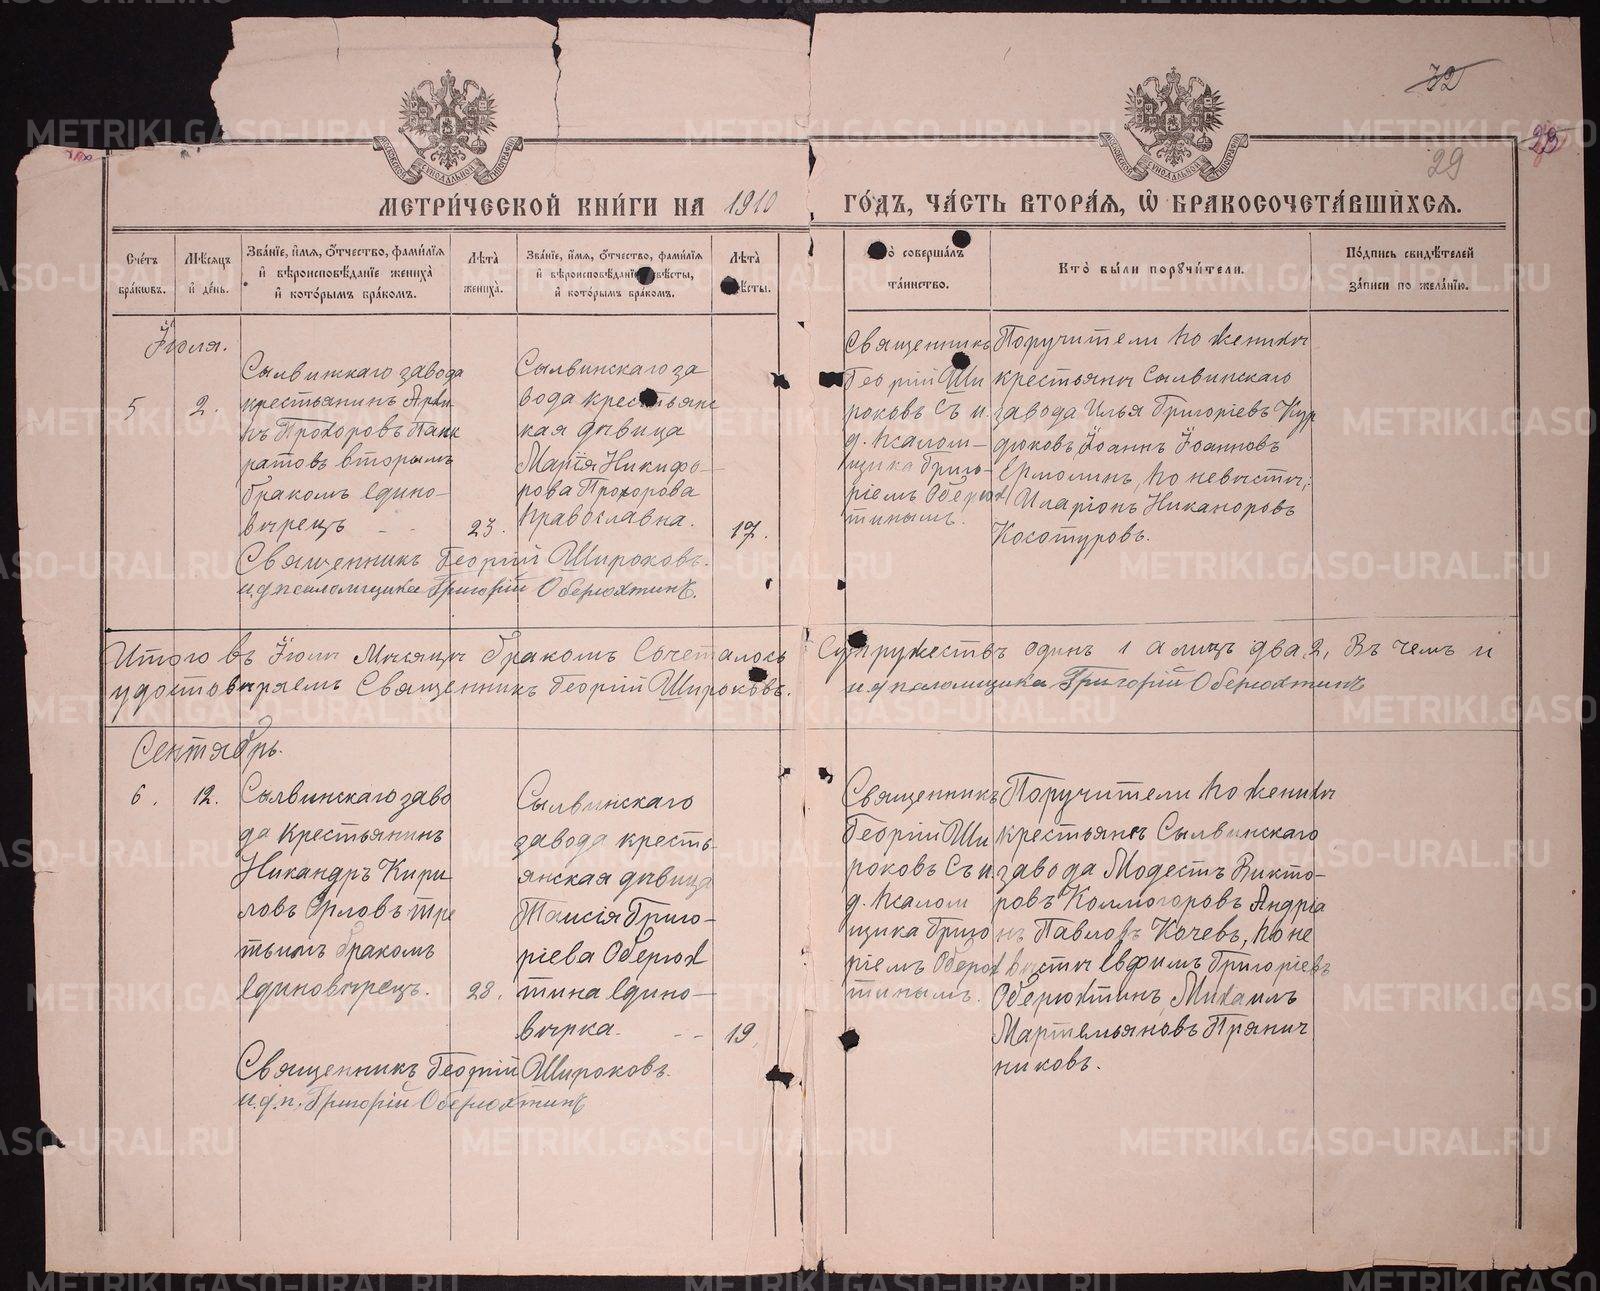 72
23
29
МОСКОВСКОЙ СѴНОДАЛЬНОЙ ТИПОГРАФІИ
МОСКОВСКОЙ СѴНОДАЛЬНОЙ ТИПОГРАФІИ
МЕТРИ́ЧЕСКОЙ КНИ́ГИ НА 1910 ГО́ДЪ, ЧА́СТЬ ВТОРА́Я, Ѽ БРАКОСОЧЕТА́ВШИХСЯ.
Сче́тъ
бра́кωвъ.
Мѣ́сяцъ
и҆ де́нь.
Зва́нїе, и҆́мя, ѻ҆́тчество, фами́лїя
и҆ вѣроисповѣ́данїе жениха̀
и҆ кото́рымъ бра́комъ.
Лѣ́та
жениха̀.
Зва́нїе, и҆́мя, ѻ҆́тчество, фами́лїя
и҆ вѣроисповѣ́данїе невѣ́сты,
и҆ кото́рымъ бра́комъ.
Лѣ́та
невѣ́сты.
Кто̀ соверша́лъ
та́инство.
Кто̀ бы́ли порꙋчи́тели.
По́дпись свидѣ́телей
за́писи по жела́нїю.
Іюля.
5
2.
Сылвинскаго завода
крестьянинъ Архи
пъ Прохоровъ Панк
ратовъ вторымъ
бракомъ Едино-
вѣрецъ
23.
Сылвинскаго за
вода крестьянс
кая дѣвица
Марія Никифо-
рова Прохорова
православна.
17.
Священникъ
Георгій Ши
роковъ Съ и.
д. псалом-
щика Григо-
ріемъ Оберюх
тинымъ.
Поручители по женихѣ
крестьяни Сылвинскаго
завода Илья Григоріевъ Кур
дюковъ Іоаннъ Іоанновъ
Ермолинъ, по невѣстѣ;
Иларіонъ Никаноровъ
Косотуровъ.
Священникъ Георгій Широковъ.
и. д. псаломщика Григорій Оберюхтинъ.
Итого въ Іюлѣ Мѣсяцѣ бракомъ Сочеталось Супружествъ одинъ 1 а лицъ два, 2, Въ чемъ и
удостовѣряемъ Священникъ Георгій Широковъ. и. д. псаломщика Григорій Оберюхтинъ
Сентябрь.
6.
12.
Сылвинскаго заво
да Крестьянинъ
Никандръ Кири
ловъ Орловъ тре
тьимъ бракомъ
Единовѣрецъ.
28.
Сылвинскаго
завода кресть-
янская дѣвица
Таисія Григо-
ріева Оберюх
тина Едино-
вѣрка.
19.
Священникъ
Георгій Ши
роковъ Съ и.
д. псалом
щика Григо
ріемъ Оберюх
тинымъ.
Поручители по женихѣ
крестьянѣ Сылвинскаго
завода Модестъ Викто-
ровъ Колмогоровъ Андріа
нъ Павловъ Кочевъ, по не
вѣстѣ Евфимъ Григоріевъ
Оберюхтинъ, Михаилъ
Мартемьяновъ Прянич
никовъ.
Священникъ Георгій Широковъ.
и. д. п. Григорій Оберюхтинъ
METRIKI.GASO-URAL.RU